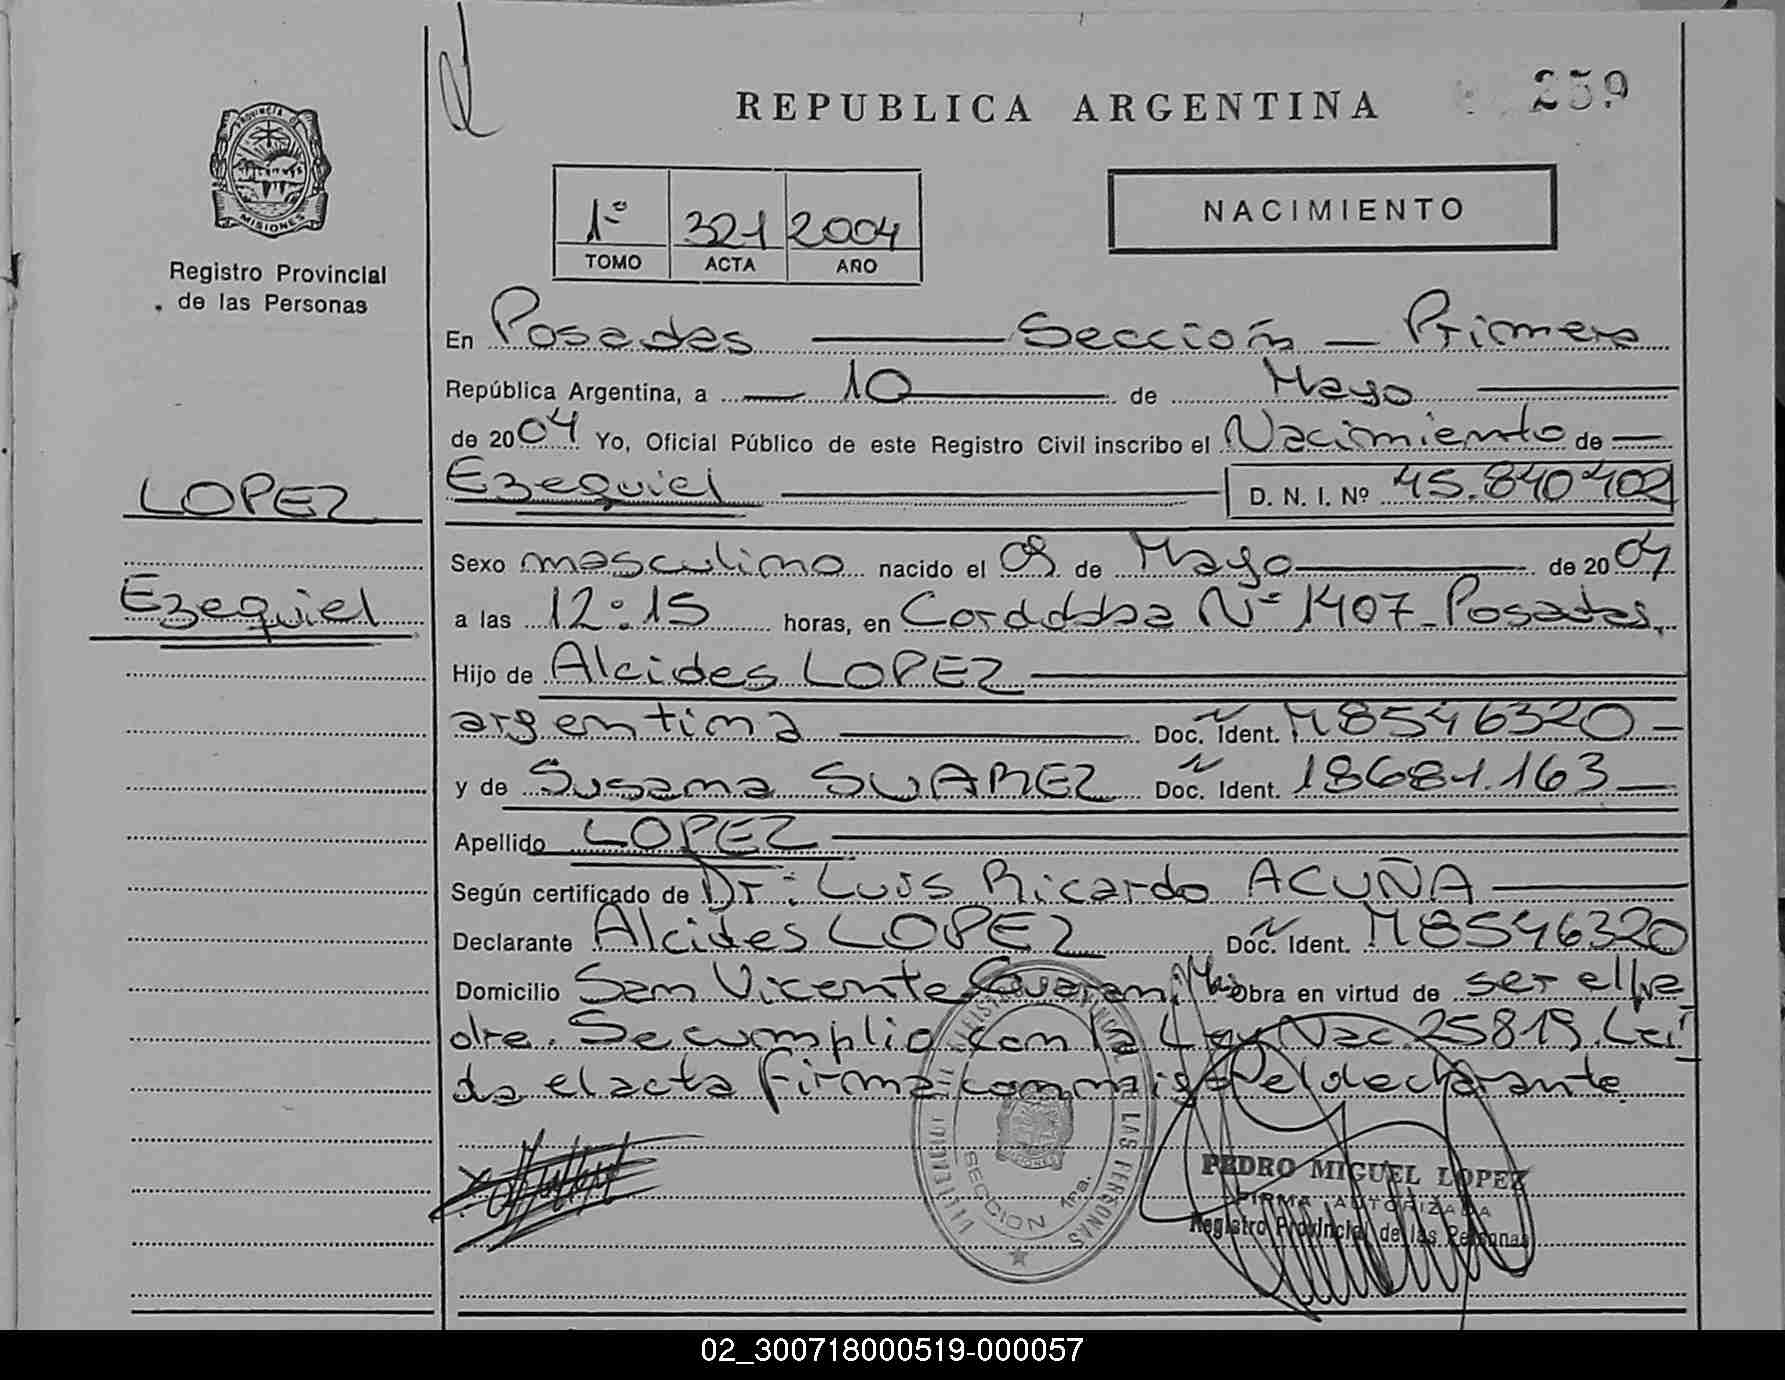 REPUBLICA ARGENTINA
259
PROVINCIA
MISIONES
Registro Provincial
de las Personas
1º 321 2004
TOMO ACTA AÑO
NACIMIENTO
En Posadas Sección - Primera
República Argentina, a 10 de Mayo
de 2004 Yo, Oficial Público de este Registro Civil inscribo el Nacimiento de
LOPEZ
Ezequiel
Ezequiel D. N. I. Nº 45.840402
Sexo masculino nacido el 09 de Mayo de 2004
a las 12:15 horas, en Cordoba Nº 1407 - Posadas,
Hijo de Alcides LOPEZ
argentina Doc. Ident. M8546320
y de Susana SUAREZ Doc. Ident. 18681.163
Apellido LOPEZ
Según certificado de Dr: Luis Ricardo ACUÑA
Declarante Alcides LOPEZ Doc. Ident. M8546320
Domicilio San Vicente Guarani Mnes Obra en virtud de ser el pa
dre. Se cumplio con la Ley Nac. 25819. Leí
da el acta firma conmigo el declarante.
LAS PERSONAS
SECCION 1ra.
PEDRO MIGUEL LOPEZ
FIRMA AUTORIZADA
Registro Provincial de las Personas
02_300718000519-000057